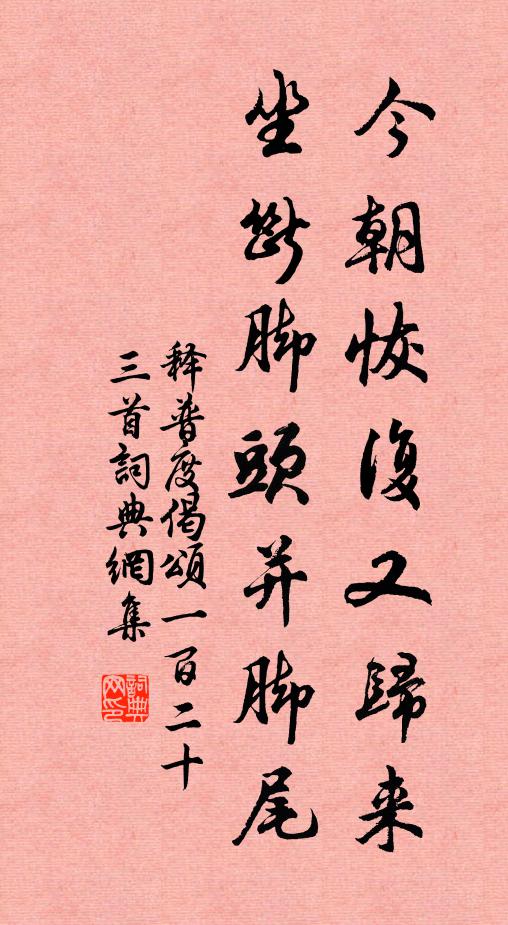 今朝恢復又歸来
坐斷脚頭并脚尾
釋普度偈頌一百二十
三首詞典網集
詞典
网印